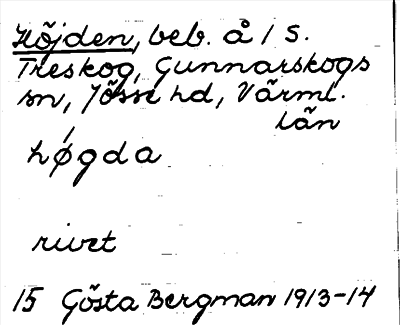 Höjden, beb. å 1 S.
Treskog, Gunnarskogs
sn, Jösse hd, Värml.
län
hǿgda
rivet
15 Gösta Bergman 1913-14